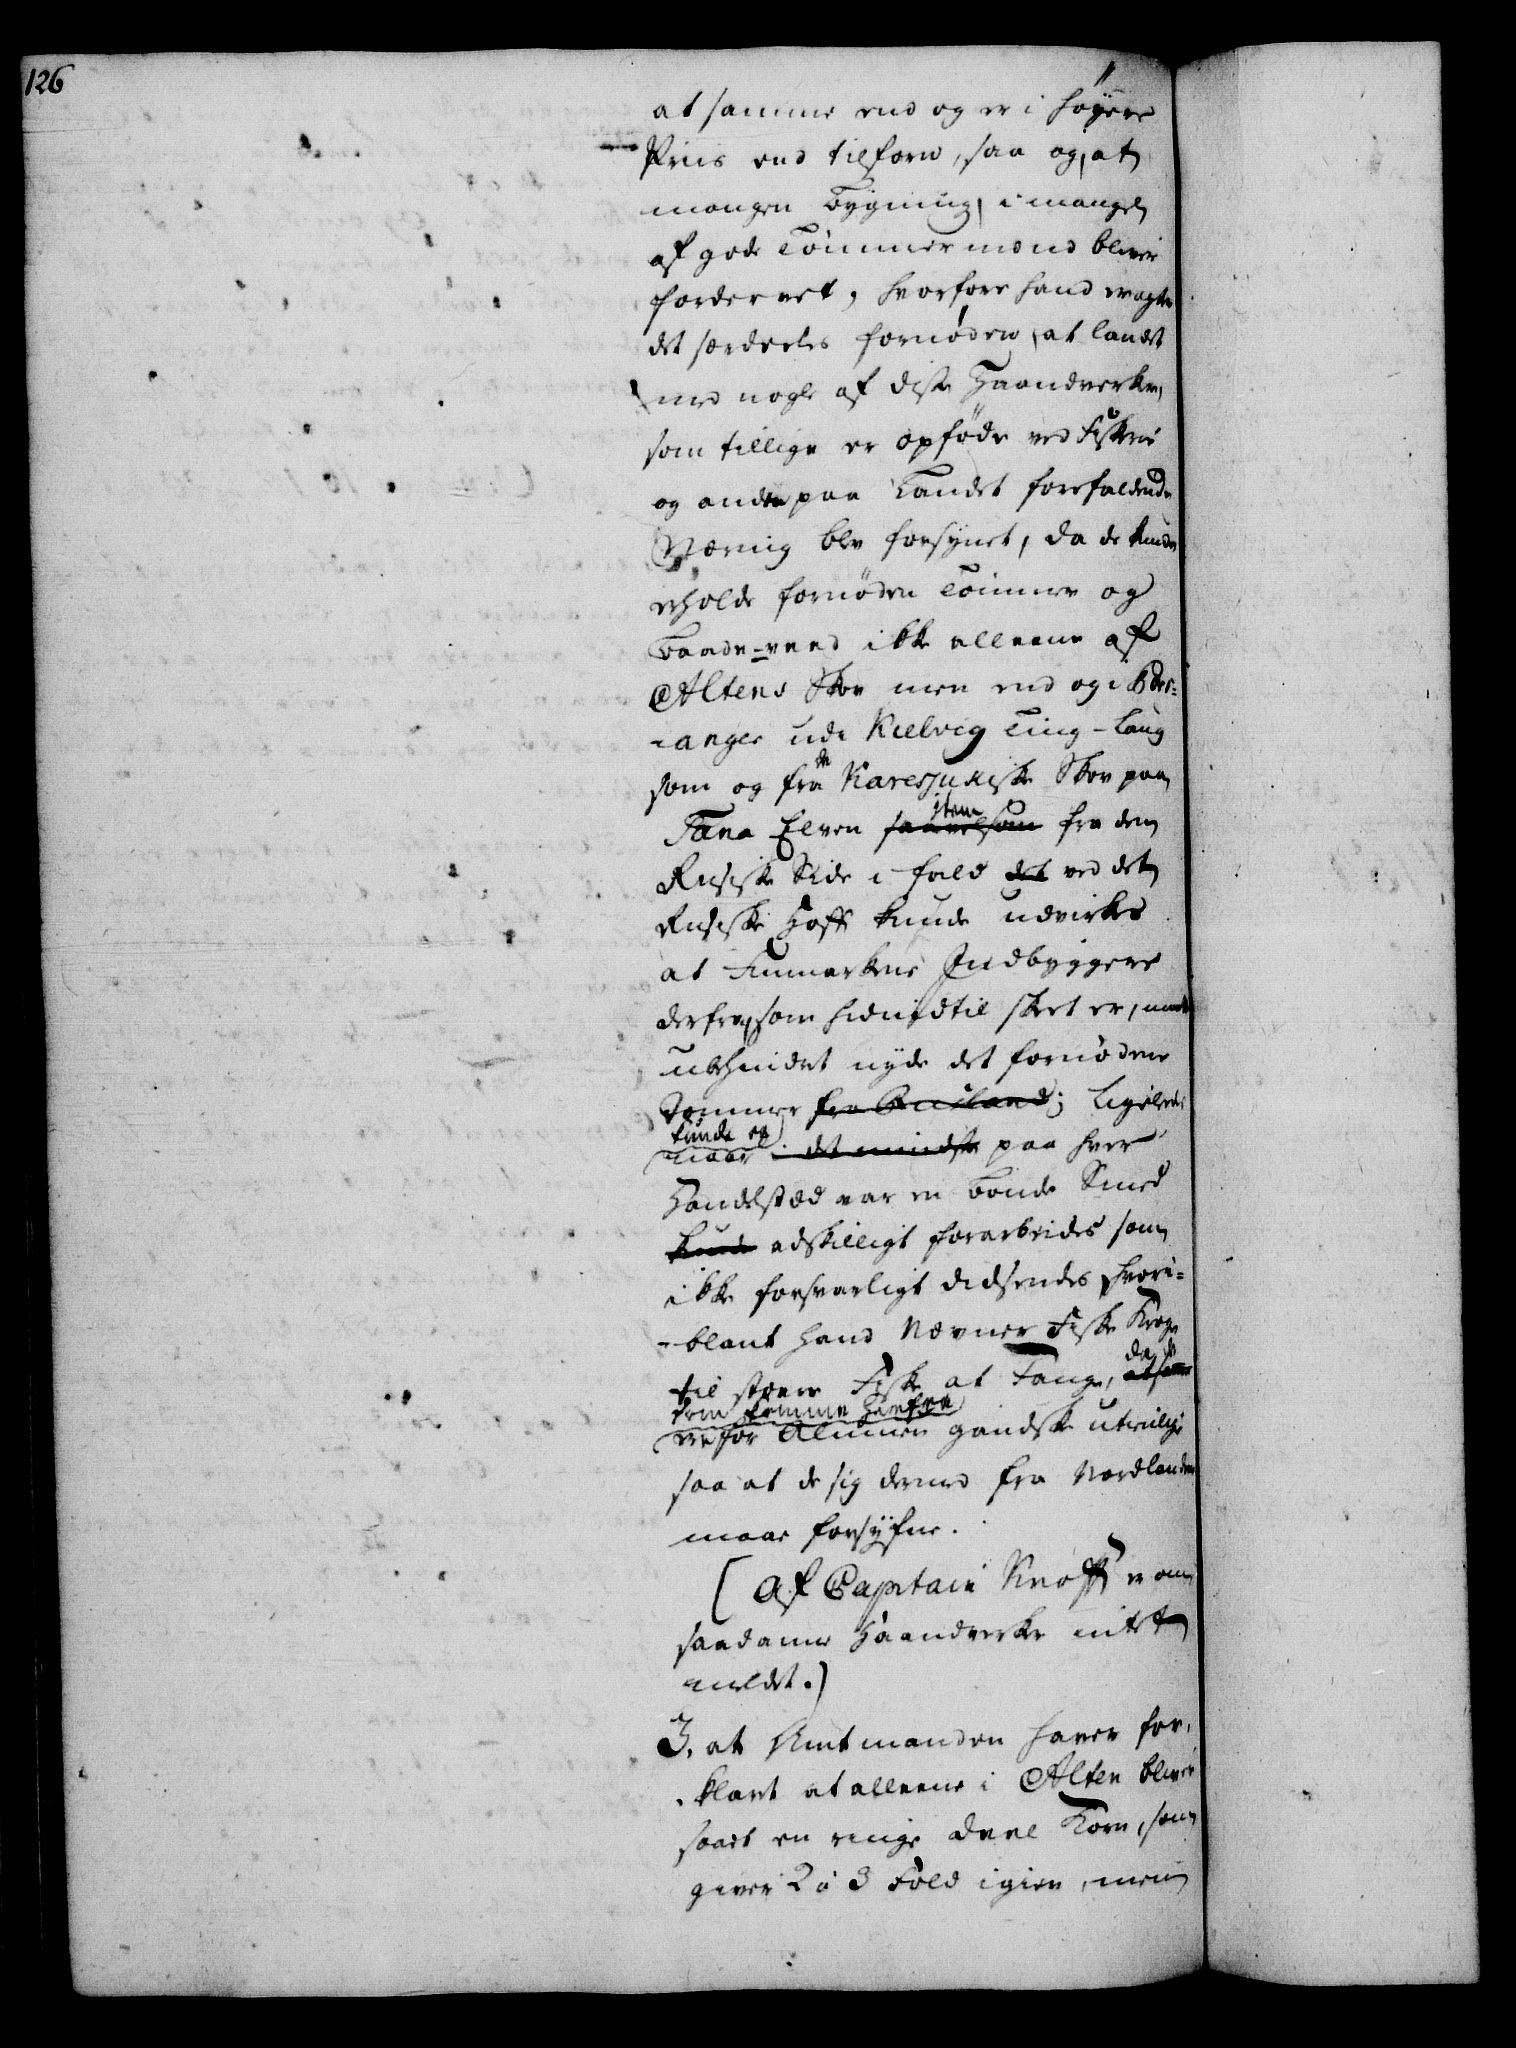 126
at samme end og er i høyere
Priis end tilforn, saa og, at
mangen Bygning, i mangel
af gode Tømmermænd bliver
fordervet, hvorfore hand eragter
det særdeeles fornøden, at landet
med nogle af disse Haandverker,
som tillige er opføde ved Fiskerie
og andre paa Landet forefaldende
Næring blev forsynet, da de kunde
erholde fornøden Tømmer og
Baade-veed ikke alleene af
Altens Skov men end og i Pors-
anger udi Kielvig Ting-Laug
som og fra de Karesjukiske Skov paa
Tana Elven saavelsom item fra den
Rusiske Side i fald det ved det
Rusiske Hoff kunde udvirkes
at Finmarkens Indbyggere
derfra, som hidindtil skeet er, maatte
ubehindret nyde det fornødne
Tømmer fra Rusland; Ligeleedes
kunde og
naar i det mindste paa hver
Handelstæd var en Bonde Smed
kunde adskilligt forarbeides som
ikke forsvarligt didsendes, hvori-
blant hand Nævner Fiske Kroge
til større Fisk at Fange, at samme da de
som komme herfra
er for Almuen gandske utienlige
saa at de sig dermed fra Nordlandene
maae forsyne.
(Af Captain Knoff er om
saadanne Haandverker intet
meldet.)
3. at Amtmanden haver for-
klaret at alleene i Alten bliver
saaet en ringe deel Korn, som
giver 2 à 3 Fold igien, men